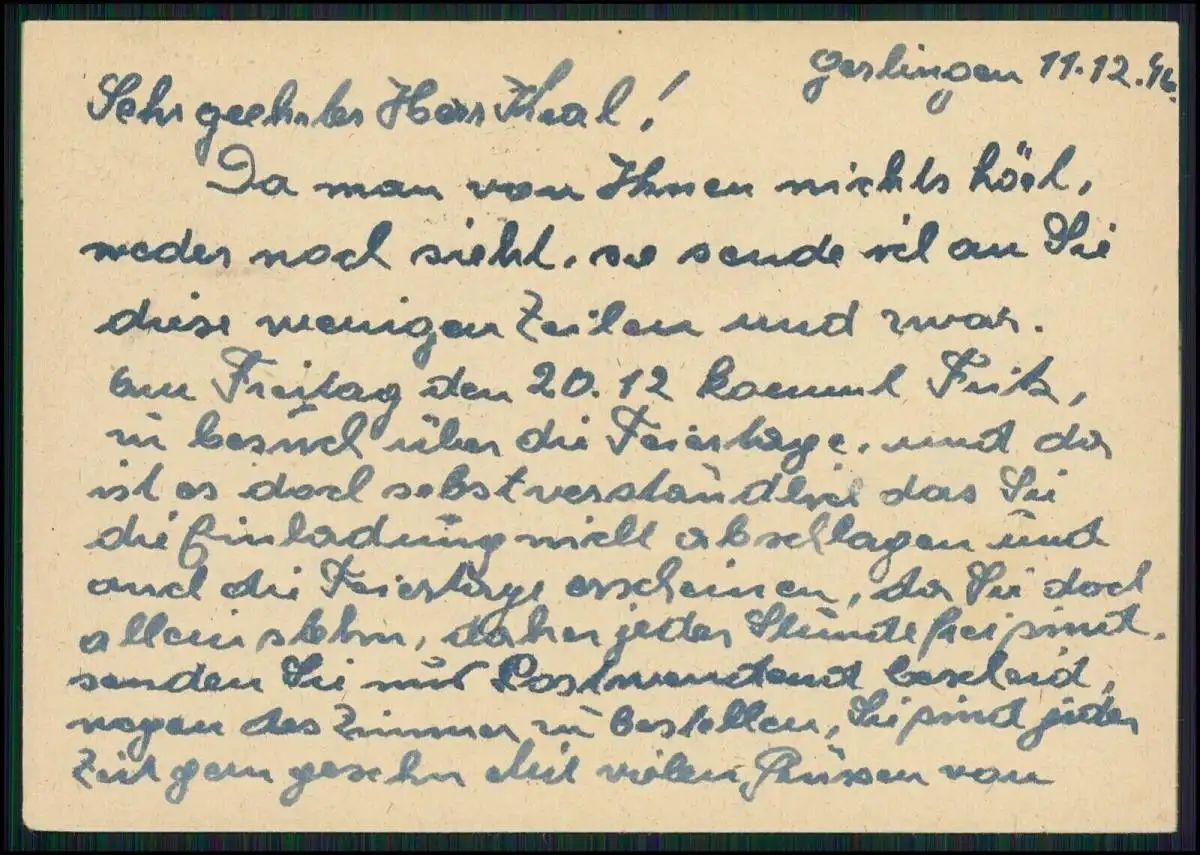 Gerlingen 11.12.46.
Sehr geehrter Herr Theal!
Da man von Ihnen nichts hört,
weder noch sieht, so sende ich an Sie
diese wenigen Zeilen und zwar.
am Freitag den 20.12 kommt Fritz,
zu besuch über die Feiertage, und da
ist es doch selbstverständlich das Sie
die Einladung nicht abschlagen und
auch die Feiertage erscheinen, da Sie doch
allein stehn, daher jeder Stunde frei sind.
senden Sie nur Postwendend bescheid,
wegen des Zimmer zu bestellen, Sie sind jeder
Zeit gern gesehn Mit vielen Grüssen von